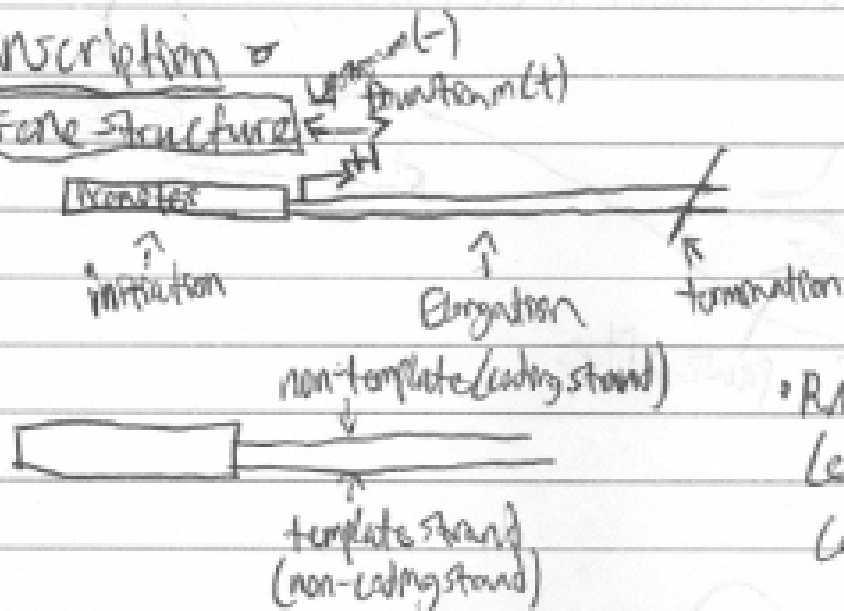 nscription
upstream(-)
Downstream(+)
ene structure
+1
Promoter
initiation
Elongation
termination
non-template(coding strand)
template strand
(non-coding strand)
• RN
(e